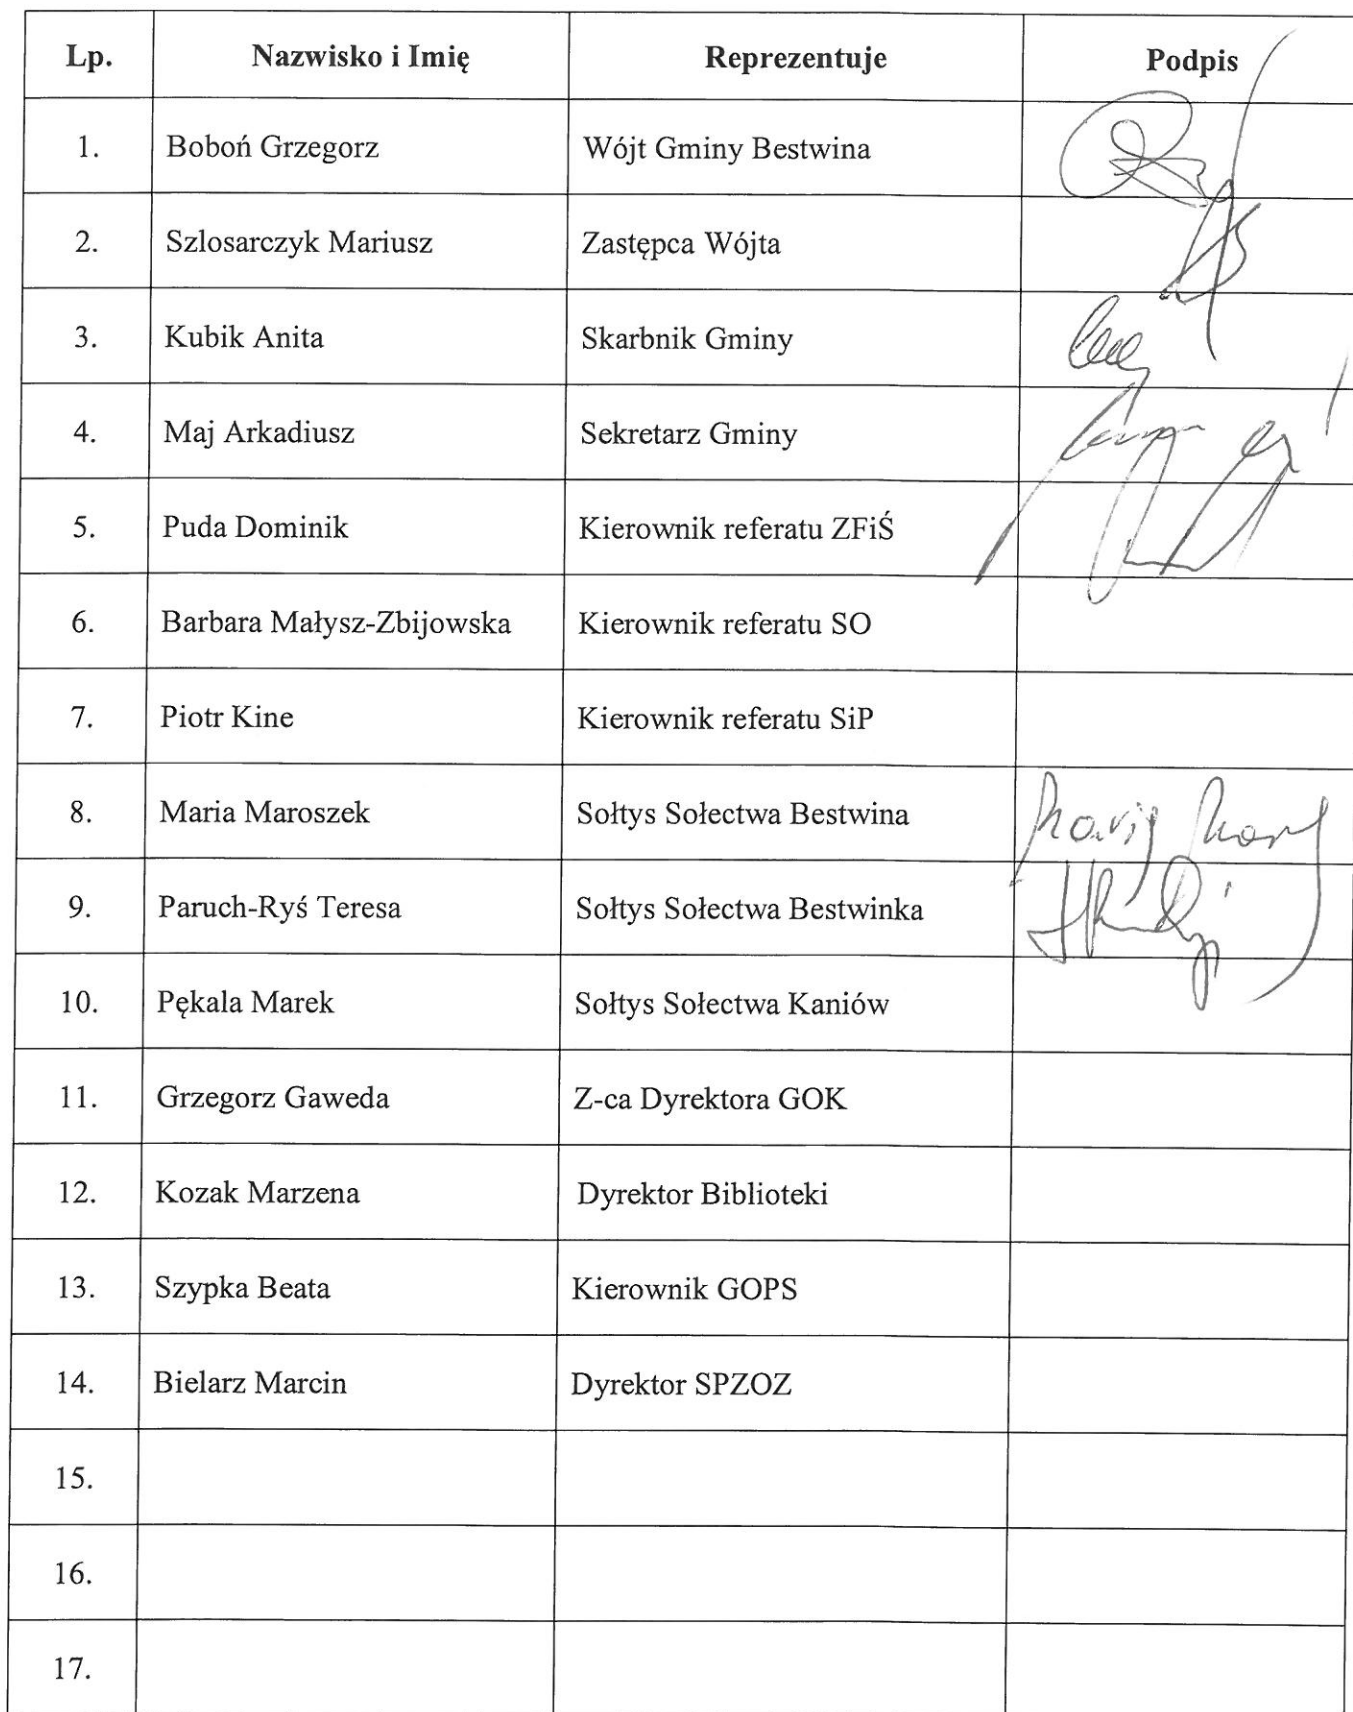 Lp. Nazwisko i Imię Reprezentuje Podpis
1. Boboń Grzegorz Wójt Gminy Bestwina
2. Szlosarczyk Mariusz Zastępca Wójta
3. Kubik Anita Skarbnik Gminy
4. Maj Arkadiusz Sekretarz Gminy
5. Puda Dominik Kierownik referatu ZFiŚ
6. Barbara Małysz-Zbijowska Kierownik referatu SO
7. Piotr Kine Kierownik referatu SiP
8. Maria Maroszek Sołtys Sołectwa Bestwina
9. Paruch-Ryś Teresa Sołtys Sołectwa Bestwinka
10. Pękala Marek Sołtys Sołectwa Kaniów
11. Grzegorz Gaweda Z-ca Dyrektora GOK
12. Kozak Marzena Dyrektor Biblioteki
13. Szypka Beata Kierownik GOPS
14. Bielarz Marcin Dyrektor SPZOZ
15.
16.
17.